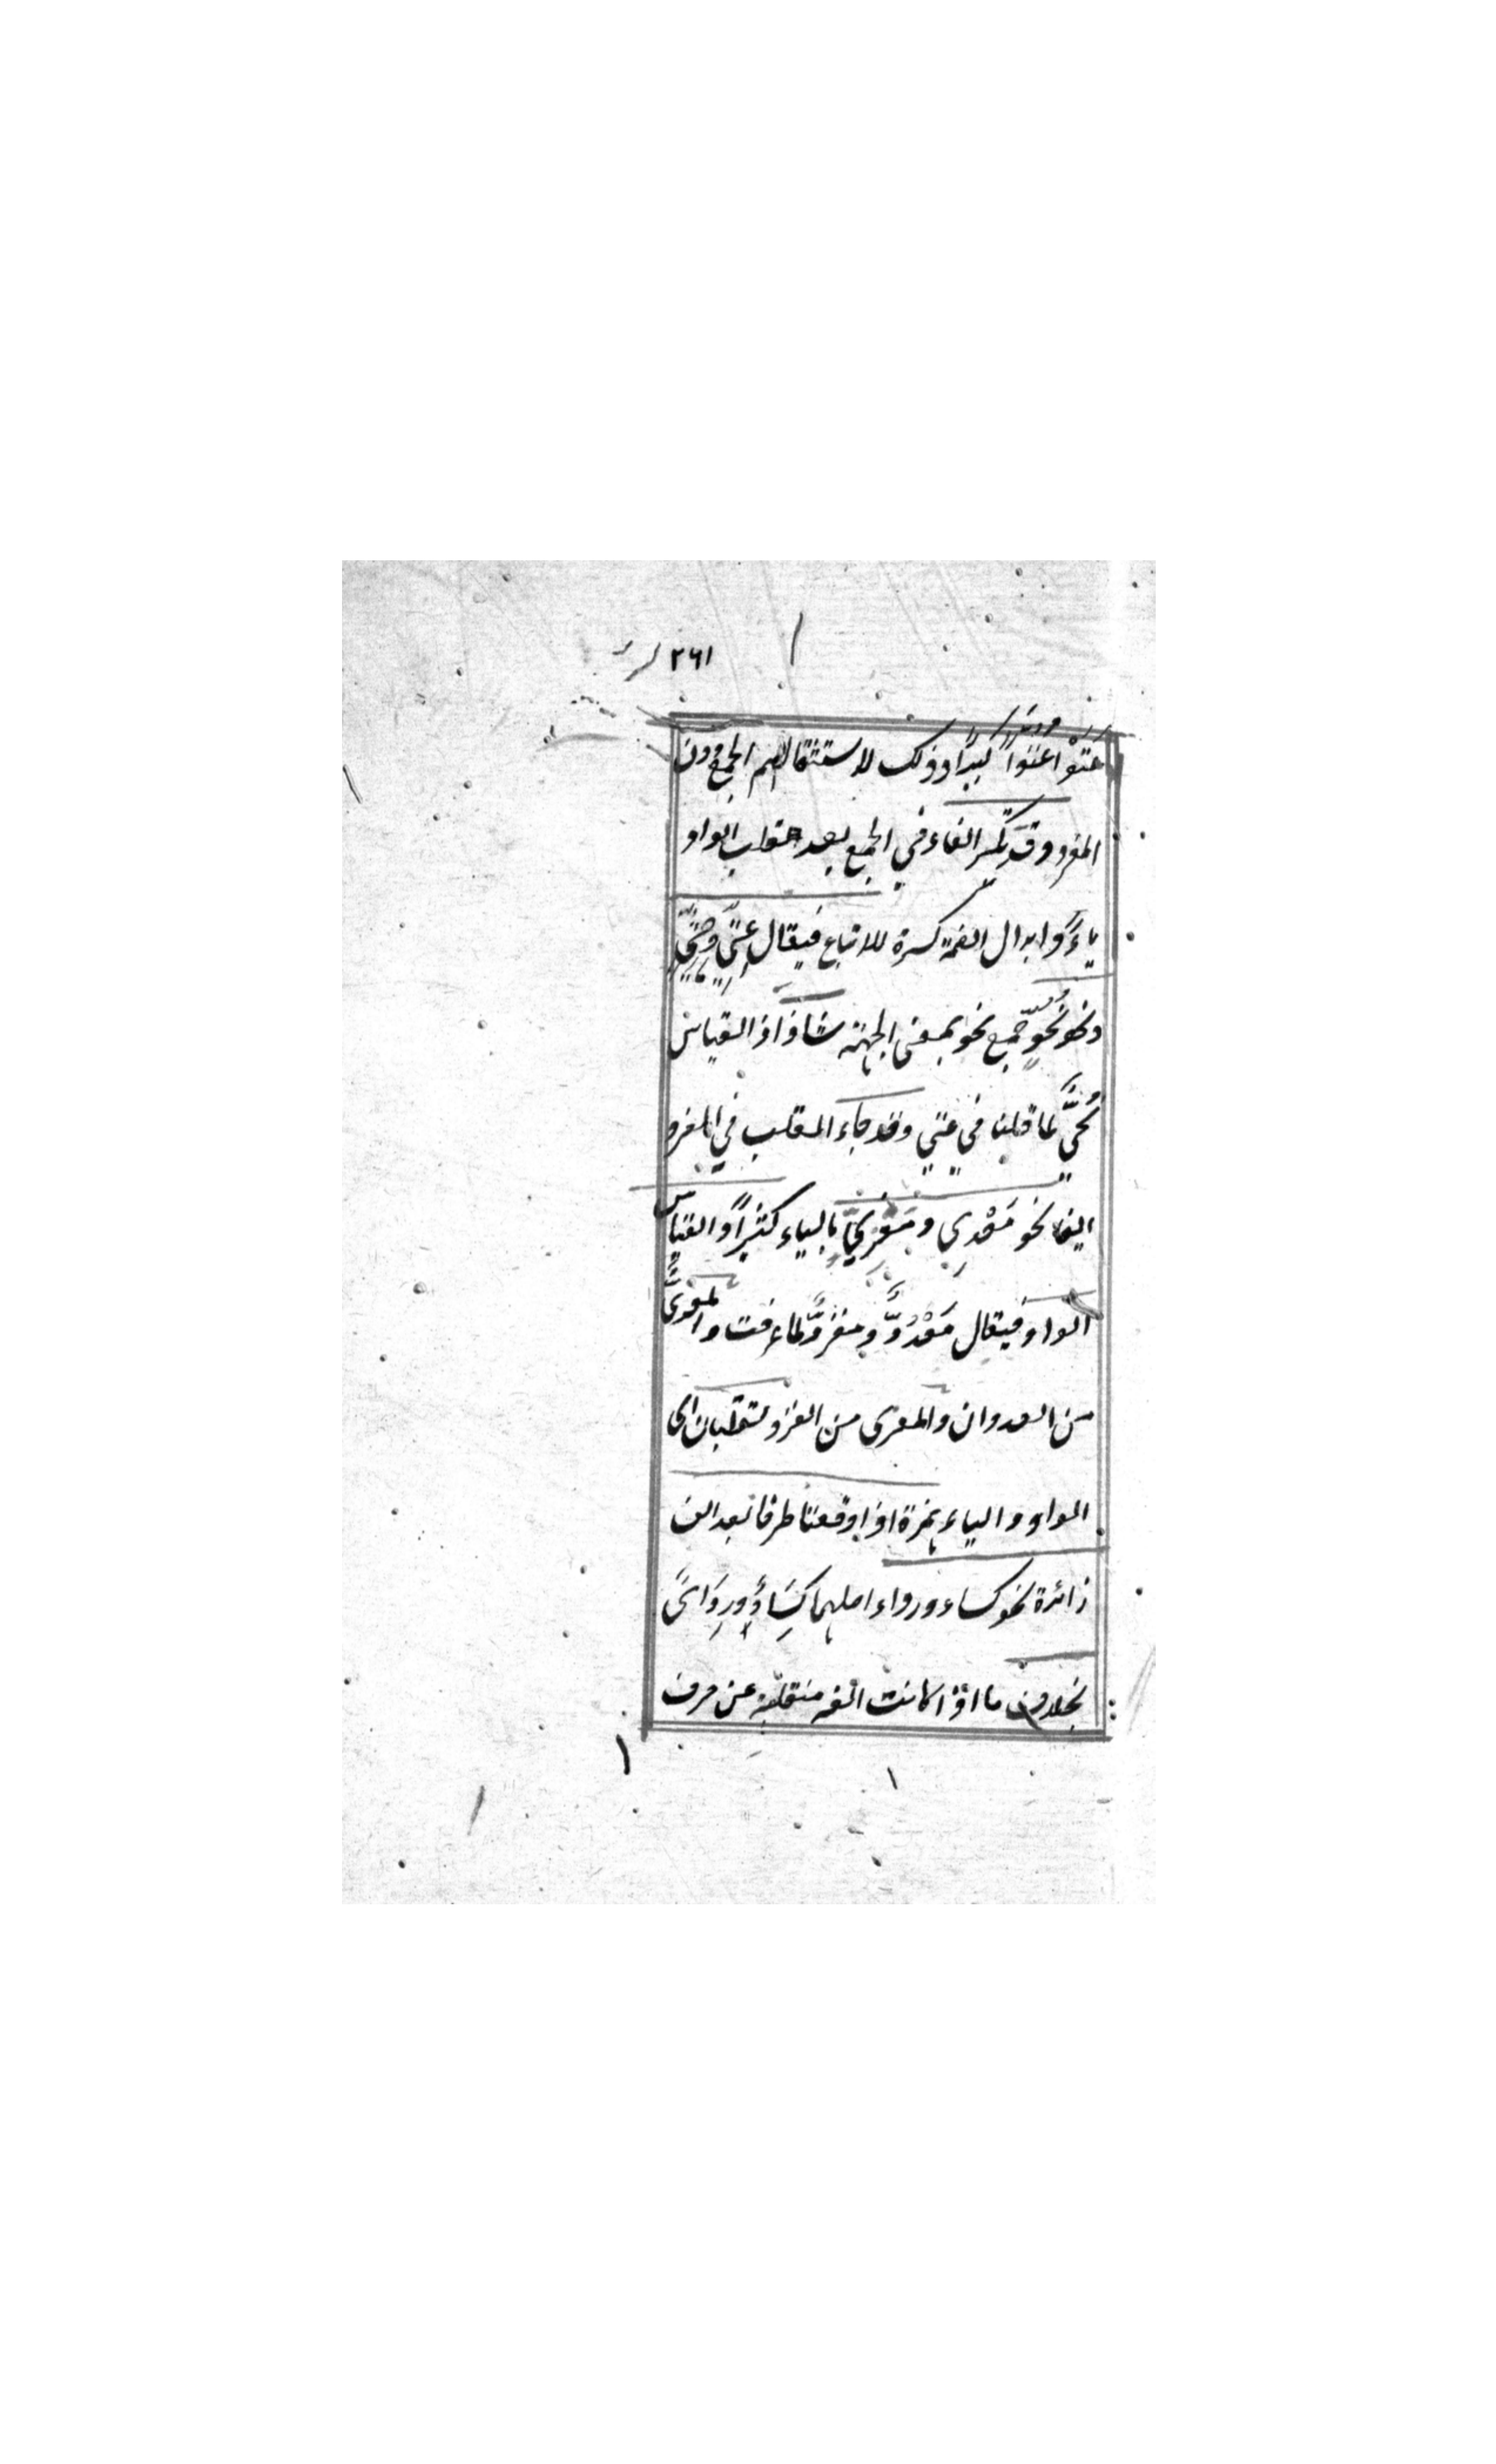 ٢٦١
عَتَوْا عُتُوًّا كَبِيرًا وذلك لاستثقالهم الجمع دون
المفرد وقد يكسر الفاء في الجمع بعد انقلاب الواو
ياءً وابدال الضمة كسرة للاتباع فيقال عِتِيّ وجِثِيّ
ونحو نُحُوّ جمع نحو بمعنى الجهة شاذ اذ القياس
نُحِيٌّ لما قلنا في عتي وقد جاء القلب في المفرد
ايضا نحو مَعْدِي ومَغْزِيّ بالياء كثيرًا والقياس
الواو فيقال مَعْدُوٌّ ومغزُوٌّ لما عرفت والمغزىّ
من العدوان والمغزى من الغزو تقلبان اى
الواو والياء همزة اذا وقعتا طرفا بعد الف
زائدة نحو كساء ورداء اصلهما كِسَاوٌ ورِدَاىٌ
بخلاف ما اذا كانت الفه منقلبة عن حرف